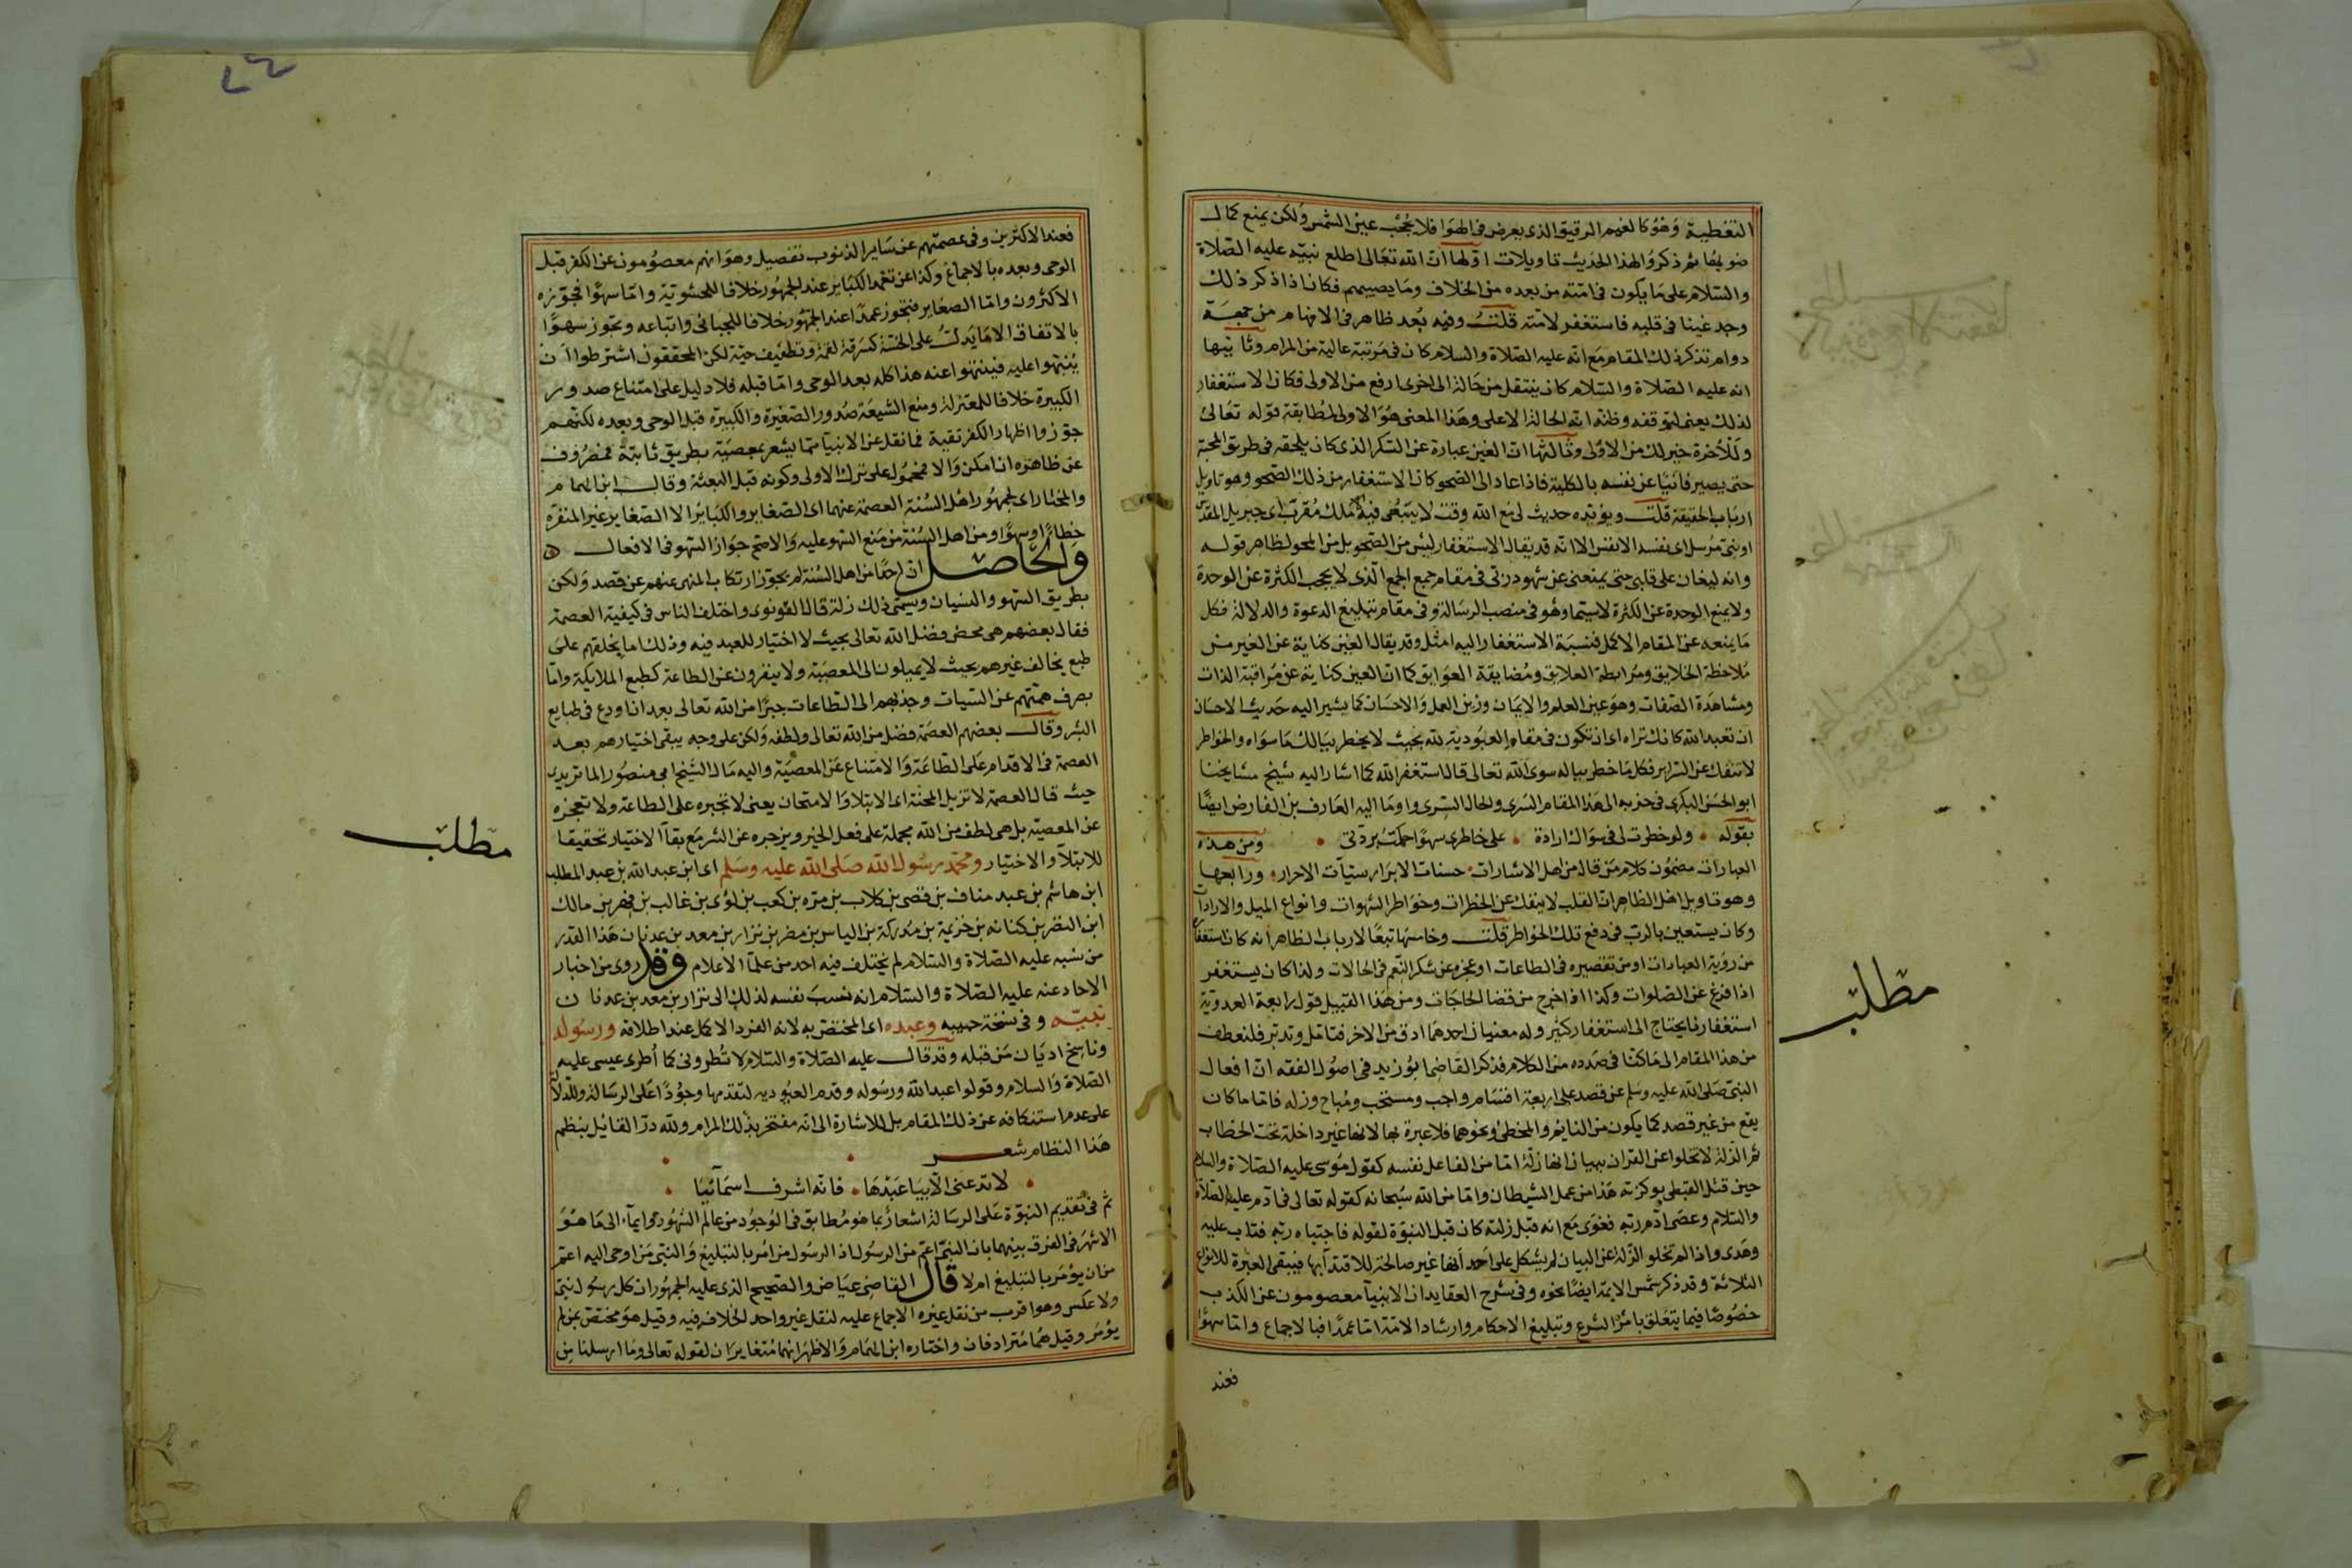 التغطية وهو كالغيم الرقيق الذى يعرض فى الهوا فلا يحجب عين الشمس ولكن يمنع كمال
ضوئها ثم ذكروا لهذا الحديث تاويلات اولها ان الله تعالى اطلع نبيه عليه الصلاة
والسلام على ما يكون فى امته من بعده من الخلاف وما يصيبهم فكان اذا ذكر ذلك
وجد غينا فى قلبه فاستغفر لامته قلت وفيه بعد ظاهر فى الافهام من جهة
دوام تذكر ذلك المقام مع انه عليه الصلاة والسلام كان فى مرتبة عالية من المرام وثانيها
انه عليه الصلاة والسلام كان ينتقل من حالة الى اخرى ارفع من الاولى فكان الاستغفار
لذلك يعنى لتوقفه وظنه انه الحالة الاعلى وهذا المعنى هو الاولى لمطابقة قوله تعالى
وللاخرة خير لك من الاولى وثالثها ان الغين عبارة عن السكر الذى كان يلحقه فى طريق المحبة
حتى يصير فانيا عن نفسه بالكلية فاذا عاد الى الصحو كان الاستغفار من ذلك الصحو وهو تاويل
ارباب الحقيقة قلت ويؤيده حديث لى مع الله وقت لا يسعنى فيه ملك مقرب اى جبريل المقدس
او نبى مرسل اى نفسه الانفس الا انه قد يقال الاستغفار ليس من الصحو بل من المحو لظاهر قوله
وانه ليغان على قلبى حتى يمنعنى عن شهود ربى فى مقام جمع الجمع الذى لا يحجب الكثرة عن الوحدة
ولا يمنع الوحدة عن الكثرة لا سيما وهو فى منصب الرسالة وفى مقام تبليغ الدعوة والدلالة فكل
ما يمنعه عن المقام الاكمل فنسبة الاستغفار اليه امثل وقد يقال الغين كناية عن الغير من
ملاحظة الخلايق ومرابطة العلايق ومضايقة العوايق كما ان العين كناية عن مراقبة الذات
ومشاهدة الصفات وهو عين العلم والايمان وزين العمل والاحسان كما يشير اليه حديث الاحسان
ان تعبد الله كانك تراه اى ان تكون فى مقام العبودية لله بحيث لا يخطر ببالك ما سواه والخواطر
لا تنفك عن السراير فكل ما خطر بباله سوى الله تعالى قال استغفر الله كما اشار اليه شيخ مشايخنا
ابو الحسن البكرى فى حزبه الى هذا المقام السرى والحال السرى واوما اليه العارف بن الفارض ايضا
بقوله ولو خطرت لى فى سواك ارادة على خاطرى سهوا حكمت بردتى ومن هذه
العبارات مضمون كلام من قال من اهل الاشارات حسنات الابرار سيئات الاحرار ورابعها
وهو تاويل اهل الظاهر ان القلب لا ينفك عن الخطرات وخواطر الشهوات وانواع الميل والارادات
وكان يستعين بالرب فى دفع تلك الخواطر قلت وخامسها تبعا لارباب الظاهر انه كان استغفاره
من رؤية العبادات او من تقصيره فى الطاعات او عجزه عن شكر النعم فى الحالات ولذا كان يستغفر
اذا فرغ عن الصلوات وكذا اذا خرج من قضا الحاجات ومن هذا القبيل قول رابعة العدوية
استغفارنا يحتاج الى استغفار كثير وله معنيان احدهما ادق من الاخر فتامل وتدبر فلنعطف
من هذا المقام الى ما كنا فى صدده من الكلام فذكر القاضى ابو زيد فى اصول الفقه ان افعال
النبى صلى الله عليه وسلم عن قصد على اربعة اقسام واجب ومستحب ومباح وزلة فاما ما كان
يقع من غير قصد كما يكون من النايم والمخطئ ونحوهما فلا عبرة بها لانها غير داخلة تحت الخطاب
ثم الزلة لا تخلوا عن القران ببيان انها زلة اما من الفاعل نفسه كقول موسى عليه الصلاة والسلام
حين قتل القبطى بوكزته هذا من عمل الشيطان واما من الله سبحانه كقوله تعالى فى ادم عليه الصلاة
والسلام وعصى ادم ربه فغوى مع انه قيل زلته كان قبل النبوة لقوله فاجتباه ربه فتاب عليه
وهدى واذا لم تخلو الزلة عن البيان لم يشكل على احد انها غير صالحة للاقتدا بها فيبقى العبرة للانواع
الثلاثة وقد ذكر شمس الايمة ايضا نحوه وفى شرح العقايد ان الانبيا معصومون عن الكذب
خصوصا فيما يتعلق بامر الشرع وتبليغ الاحكام وارشاد الامة اما عمدا فبالاجماع واما سهوا
فعند
مطلب
فعند الاكثرين وفى عصمتهم عن ساير الذنوب تفصيل وهو انهم معصومون عن الكفر قبل
الوحى وبعده بالاجماع وكذا عن تعمد الكباير عند الجمهور خلافا للحشوية واما سهوا فجوزه
الاكثرون واما الصغاير فتجوز عمدا عند الجمهور خلافا للجبائى واتباعه وتجوز سهوا
بالاتفاق الا ما يدل على الخسة كسرقة لقمة وتطفيف حبة لكن المحققون اشترطوا ان
ينبهوا عليه فينتهوا عنه هذا كله بعد الوحى واما قبله فلا دليل على امتناع صدور
الكبيرة خلافا للمعتزلة ومنع الشيعة صدور الصغيرة والكبيرة قبل الوحى وبعده لكنهم
جوزوا اظهار الكفر تقية فما نقل عن الانبيا مما يشعر بمعصية بطريق ثابتة فمصروف
عن ظاهره ان امكن والا فمحمول على ترك الاولى وكونه قبل البعثة وقال ابن الهمام
والمختار اى لجمهور اهل السنة العصمة عنهما اى الصغاير والكباير الا الصغاير غير المنفرة
خطا او سهوا ومن اهل السنة من منع السهو عليه والاصح جواز السهو فى الافعال
والحاصل ان احدا من اهل السنة لم يجوز ارتكاب المنهى عنهم عن قصد ولكن
بطريق السهو والنسيان ويسمى ذلك زلة قال القونوى واختلف الناس فى كيفية العصمة
فقال بعضهم هى محض فضل الله تعالى بحيث لا اختيار للعبد فيه وذلك اما بخلقهم على
طبع يخالف غيرهم بحيث لا يميلون الى المعصية ولا ينفرون عن الطاعة كطبع الملايكة واما
بصرف همتهم عن السيات وجذبهم الى الطاعات جبرا من الله تعالى بعد ان اودع فى طبايع
البشر وقال بعضهم العصمة فضل من الله تعالى ولطفه ولكن على وجه يبقى اختيارهم بعد
العصمة فى الاقدام على الطاعة والامتناع عن المعصية واليه مال الشيخ ابى منصور الماتريدى
حيث قال العصمة لا تزيل المحنة اى الابتلا والامتحان يعنى لا تجبره على الطاعة ولا تعجزه
عن المعصية بل هى لطف من الله تحمله على فعل الخير ويزجره عن الشر مع بقا الاختيار تحقيقا
للابتلا والاختبار ومحمد رسول الله صلى الله عليه وسلم اى ابن عبد الله بن عبد المطلب
ابن هاشم بن عبد مناف بن قصى بن كلاب بن مرة بن كعب بن لؤى بن غالب بن فهر بن مالك
ابن النضر بن كنانه بن خزيمة بن مدركة بن الياس بن مضر بن نزار بن معد بن عدنان هذا القدر
من نسبه عليه الصلاة والسلام لم يختلف فيه احد من علما الاعلام وقد روى من اخبار
الاحاد عنه عليه الصلاة والسلام انه نسب نفسه لذلك الى نزار بن معد بن عدنان
نبيه وفى نسخة حبيبه وعبده اى المختص به لانه الفرد الاكمل عند اطلاقه ورسوله
وناسخ اديان من قبله وقد قال عليه الصلاة والسلام لا تطرونى كما اطرى عيسى عليه
الصلاة والسلام وقولوا عبد الله ورسوله وقدم العبودية لتقدمها وجودا على الرسالة وللدلالة
على عدم استنكافه عن ذلك المقام بل للاشارة الى انه مفتخر بذلك المرام ولله در القائل بنظم
هذا النظام شعر
لا تدعنى الا بيا عبدها فانه اشرف اسمائيا
ثم فى تقديم النبوة على الرسالة اشعار بما هو مطابق فى الوجود من عالم الشهود وايماء الى ما هو
الاشهر فى الفرق بينهما بان النبى اعم من الرسول اذ الرسول من امر بالتبليغ والنبى من اوحى اليه اعم
من ان يؤمر بالتبليغ ام لا قال القاضى عياض والصحيح الذى عليه الجمهور ان كل رسول نبى
ولا عكس وهو اقرب من نقل غيره الاجماع عليه لنقل غير واحد الخلاف فيه وقيل هو مختص بمن لم
يؤمر وقيل هما مترادفان واختاره ابن الهمام والاظهر انهما متغايران لقوله تعالى وما ارسلنا من
مطلب